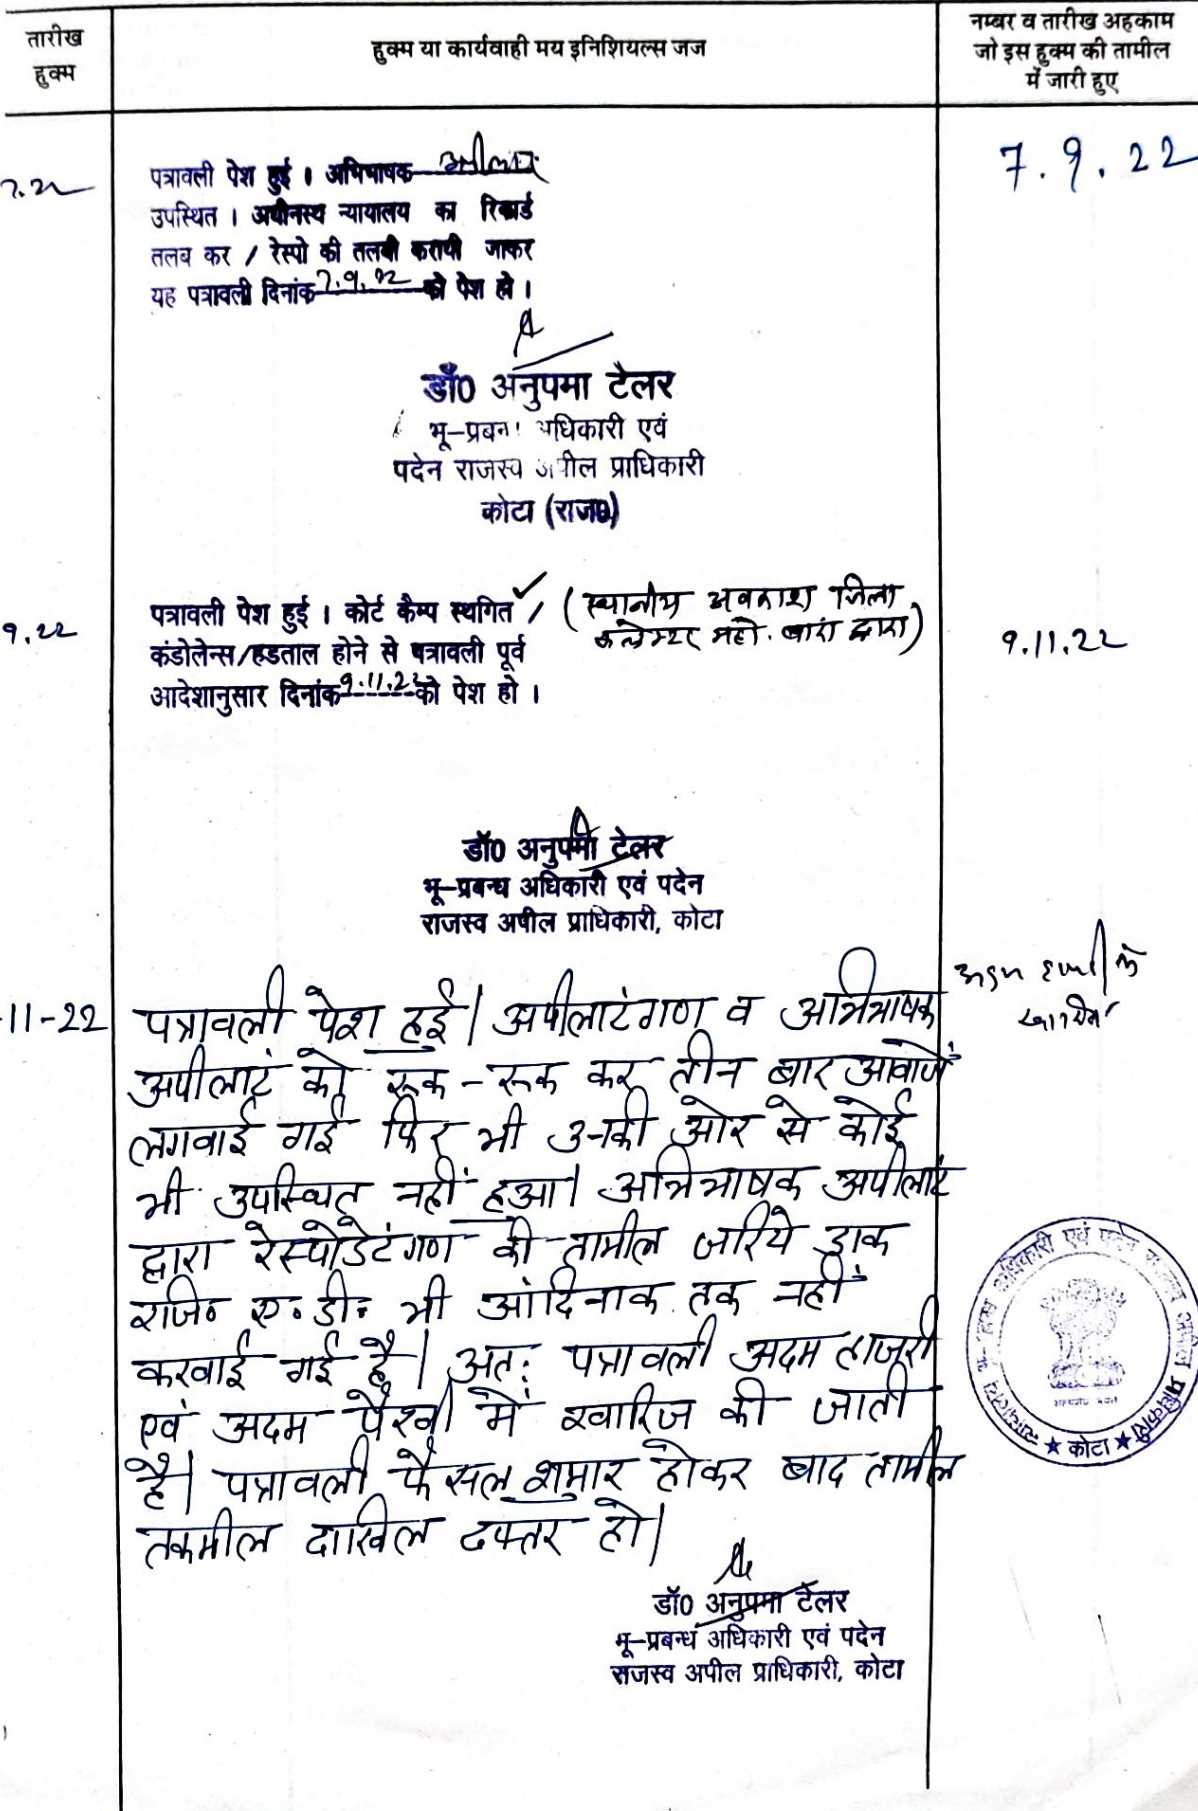 तारीख
हुक्म
हुक्म या कार्यवाही मय इनिशियल्स जज
नम्बर व तारीख अहकाम
जो इस हुक्म की तामील
में जारी हुए
7.22
पत्रावली पेश हुई । अभिभाषक अपीलांट
उपस्थित । अधीनस्थ न्यायालय का रिकार्ड
तलब कर / रेस्पो की तलबी करायी जाकर
यह पत्रावली दिनांक 7.9.22 को पेश हो ।
7.9.22
डॉ0 अनुपमा टैलर
भू-प्रबन्ध अधिकारी एवं
पदेन राजस्व अपील प्राधिकारी
कोटा (राज0)
9.22
पत्रावली पेश हुई । कोर्ट कैम्प स्थगित ✓ / (स्थानीय अवकाश जिला
कलेक्टर महो. बारां द्वारा)
कंडोलेन्स/हडताल होने से पत्रावली पूर्व
आदेशानुसार दिनांक 9.11.22 को पेश हो ।
9.11.22
डॉ0 अनुपमा टेलर
भू-प्रबन्ध अधिकारी एवं पदेन
राजस्व अपील प्राधिकारी, कोटा
-11-22
पत्रावली पेश हुई। अपीलाटंगण व अभिभाषक
अपीलाटं को रूक-रूक कर तीन बार आवाजें
लगवाई गई फिर भी उनकी ओर से कोई
भी उपस्थित नहीं हुआ। अभिभाषक अपीलांट
द्वारा रेस्पोडेटंगण की तामील जरिये डाक
राजि० ए.डी. भी आंदिनाक तक नहीं
करवाई गई है। अतः पत्रावली अदम हाजूरी
एवं अदम पैरवी में खारिज की जाती
है। पत्रावली फैसल शुमार होकर बाद तामील
तकमील दाखिल दफ्तर हो।
अदम
खारिज
कोटा
डॉ0 अनुपमा टेलर
भू-प्रबन्ध अधिकारी एवं पदेन
राजस्व अपील प्राधिकारी, कोटा